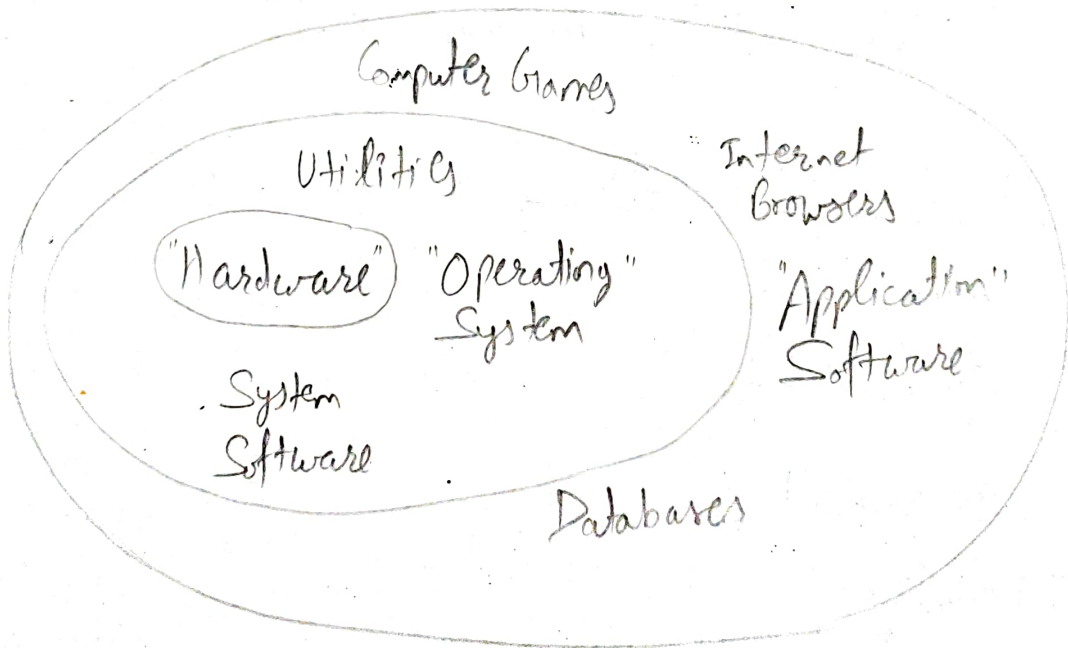 Computer Games
Utilities
Internet
Browsers
"Hardware"
"Operating"
System
"Application"
Software
System
Software
Databases